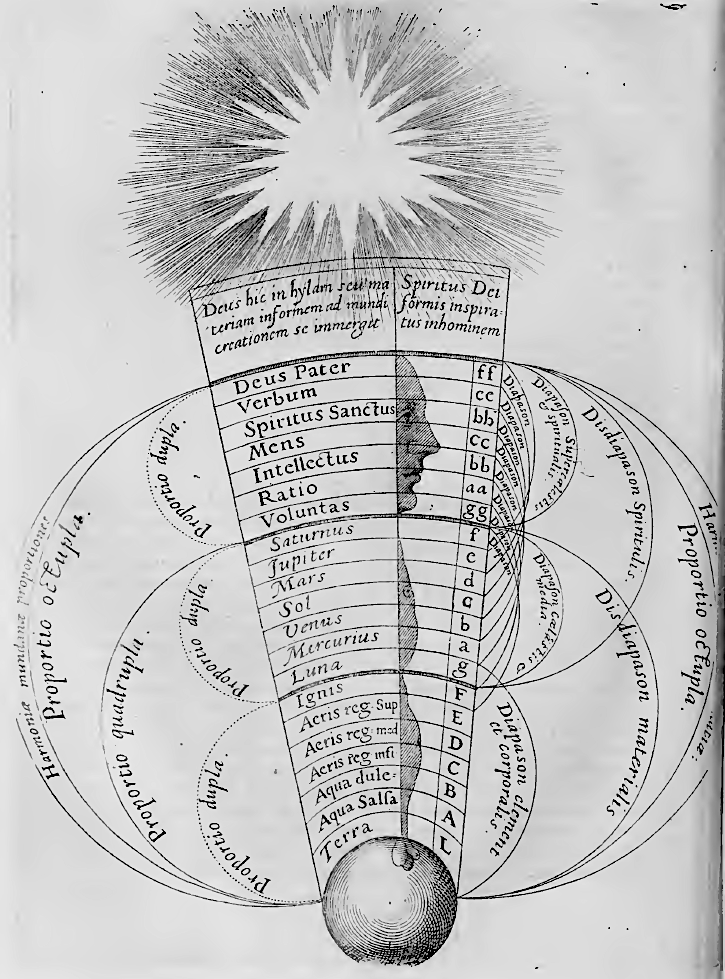 Deus hic in hylam seu ma
teriam informem ad mundi
creationem se immergit
Spiritus Dei
formis inspira-
tus in hominem
Deus Pater
Verbum
Spiritus Sanctus
Mens
Intellectus
Ratio
Voluntas
Saturnus
Jupiter
Mars
Sol
Venus
Mercurius
Luna
Ignis
Aeris reg. Sup
Aeris reg. med
Aeris reg. infi
Aqua dulc:
Aqua Salsa
Terra
ff
ee
bb
cc
bb
aa
gg
f
e
d
c
b
a
g
F
E
D
C
B
A
L
Proportio dupla.
Proportio dupla.
Proportio dupla.
Proportio quadrupla.
Proportio octupla.
Harmoniæ mundanæ proportiones
Diapason
Diapason
Diapason
Diapason
Diapason
Diapason
Diapason
Diapason
Diapason Supercœlestis
& spiritualis
Diapason Cœlestis &
media.
Diapason element
et corporalis.
Disdiapason Spiritualis.
Disdiapason materialis
Proportio octupla.